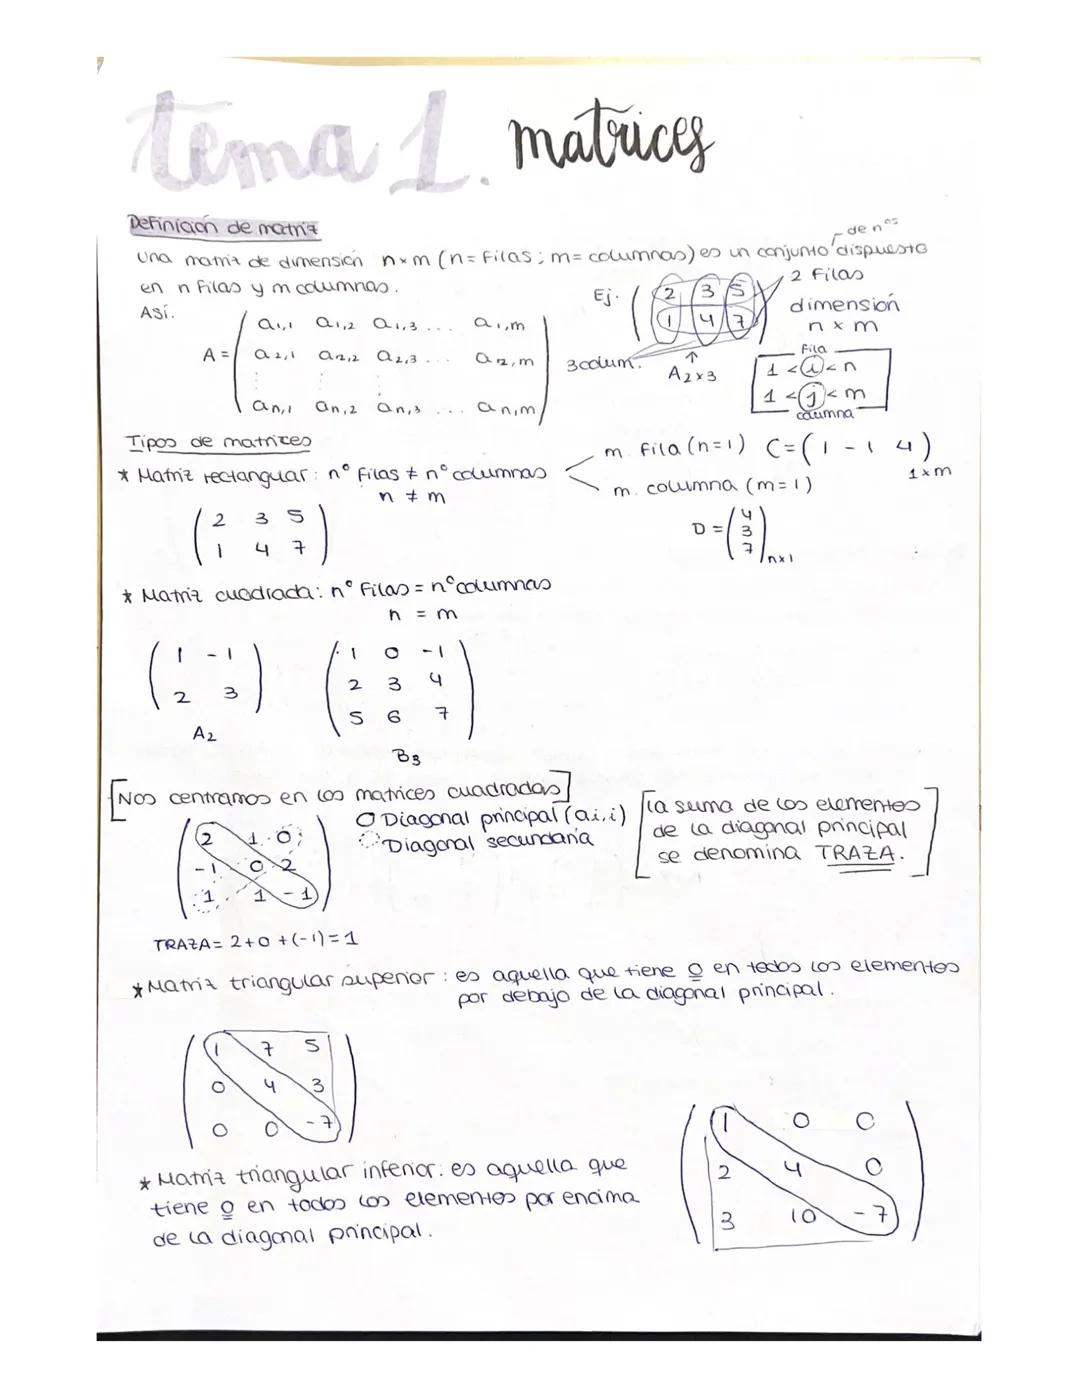 tema 1. matrices
Definición de matriz
de nos
Una matriz de dimensión n×m (n = filas; m = columnas) es un conjunto dispuesto
en n filas y m columnas.
Así.
A = ( a1,1 a1,2 a1,3 ... a1,m
a2,1 a2,2 a2,3 ... a2,m
⋮ ⋮
an,1 an,2 an,3 ... an,m )
Ej. ( 2 3 5
1 4 7 )
2 filas
dimensión
n × m
3 colum.
↑
A2×3
fila
1 < i < n
1 < j < m
columna
Tipos de matrices
* Matriz rectangular: nº filas ≠ nº columnas
n ≠ m
( 2 3 5
1 4 7 )
m. fila (n=1) C = ( 1 -1 4 ) 1×m
m. columna (m=1)
D = ( 4
3
7 ) n×1
* Matriz cuadrada: nº filas = nº columnas
n = m
( 1 -1
2 3 )
A2
( 1 0 -1
2 3 4
5 6 7 )
B3
[Nos centramos en las matrices cuadradas]
( 2 1 0
-1 0 2
1 1 -1 )
Diagonal principal (ai,i)
Diagonal secundaria
[La suma de los elementos
de la diagonal principal
se denomina TRAZA.]
TRAZA = 2+0+(-1) = 1
* Matriz triangular superior: es aquella que tiene 0 en todos los elementos
por debajo de la diagonal principal.
( 1 7 5
0 4 3
0 0 -7 )
* Matriz triangular inferior. es aquella que
tiene 0 en todos los elementos por encima
de la diagonal principal.
( 1 0 0
2 4 0
3 10 -7 )